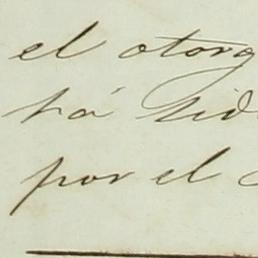 el otorg
há sid
por el